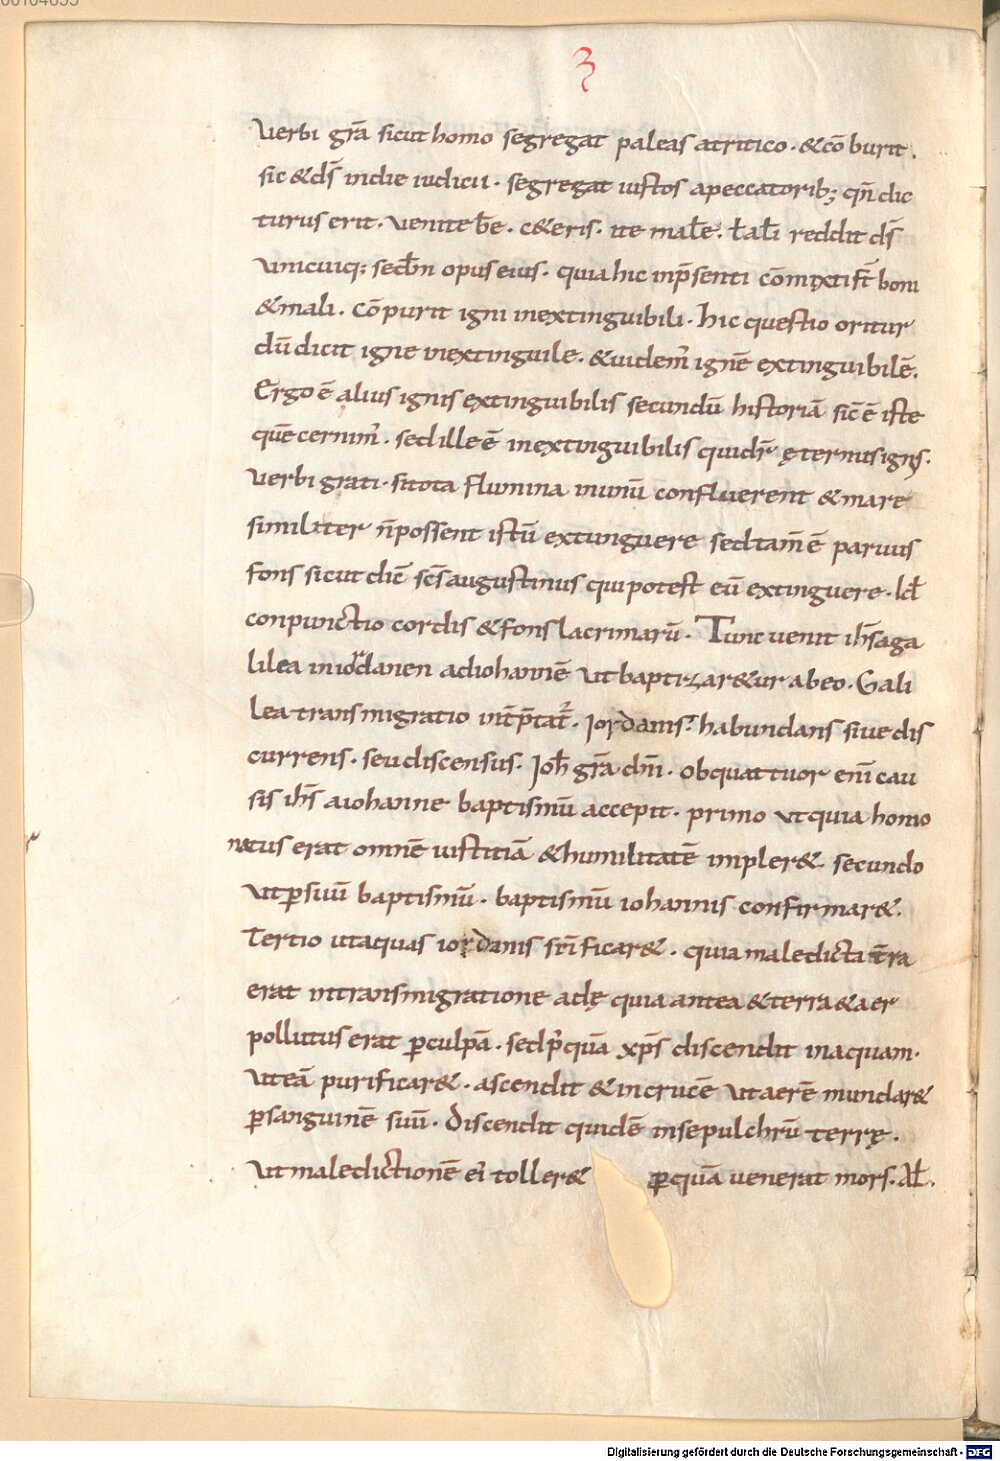 3
Uerbi grã sicut homo segregat paleas atritico. &cõburit.
sic &ds̄ indie iudicii. segregat iustos apeccatorib; qn̄ dic
turus erit. Uenite b̄e. c&eris. ite mal̄e. t̄ali reddit ds̄
unicuiq; secd̄m opus eius. quia hic inp̄senti cõmixti st̄ boni
&mali. Cõpurit igni inextinguibili. hic questio oritur
dũ dicit igne inextinguile. &uidem̃ ignẽ extinguibilẽ.
Ergo ẽ alius ignis extinguibilis secundũ historiã sic̄ ẽ iste
quẽ cernim̃. sed ille ẽ inextinguibilis qui dr̄ ęternus ignis.
Uerbi grati. si tota flumina inunũ confluerent &mare
similiter n̄ possent istũ extunguere sed tam̄ ẽ paruus
fons sicut dic̄ scs̄ augustinus qui potest eũ extinguere. Id ē
conpunctio cordis &fons lacrimarũ. Tunc uenit ihs̄ aga
lilea iniordanen adiohannẽ ut baptizar&ur abeo. Gali
lea transmigratio int̄p̄tat̄. Iordanis. habundans siue dis
currens. seu discensus. Ioh̄ grã dn̄i. obquattuor eni cau
sis ihs̄ aiohanne baptismũ accepit. primo ut quia homo
natus erat omnẽ iustitiã &humilitatẽ impler& secundo
ut ꝑ suũ baptismũ. baptismũ iohannis confirmar&.
Tertio ut aquas iordanis sc̄ificar&. quia maledicta t̄ra
erat intransmigratione adę quia antea &terra &aer
pollutus erat ꝑculpã. sed p̄quã xp̄s discendit inaquam.
ut eã purificar&. ascendit &incrucẽ ut aerẽ mundar&
ꝑsanguinẽ suũ. Discendit quidẽ insepulchrũ terrę.
Ut maledictionẽ ei toller& ꝑquã uenerat mors. Al̄.
Digitalisierung gefördert durch die Deutsche Forschungsgemeinschaft - DFG